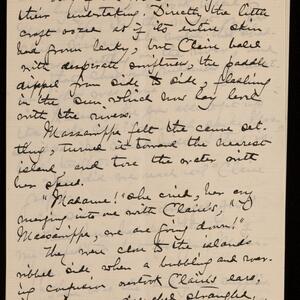 their undertaking. Directly the little
craft oozed as if its entire skin
had grown leaky, but Claire baled
with desperate swiftness, the paddle
dipped from side to side, flashing
in the sun which now lay level
with the waves.
Massanippe felt the canoe set-
tling, turned it toward the nearest
island and tore the water with
her speed.
"Madame!" she cried, her cry
merging into one with Claire's, "
Massanippe, we are going down!"
They were close to the islands
ribbed side when a bubbling and
confusion Claire's ears,
strangled,